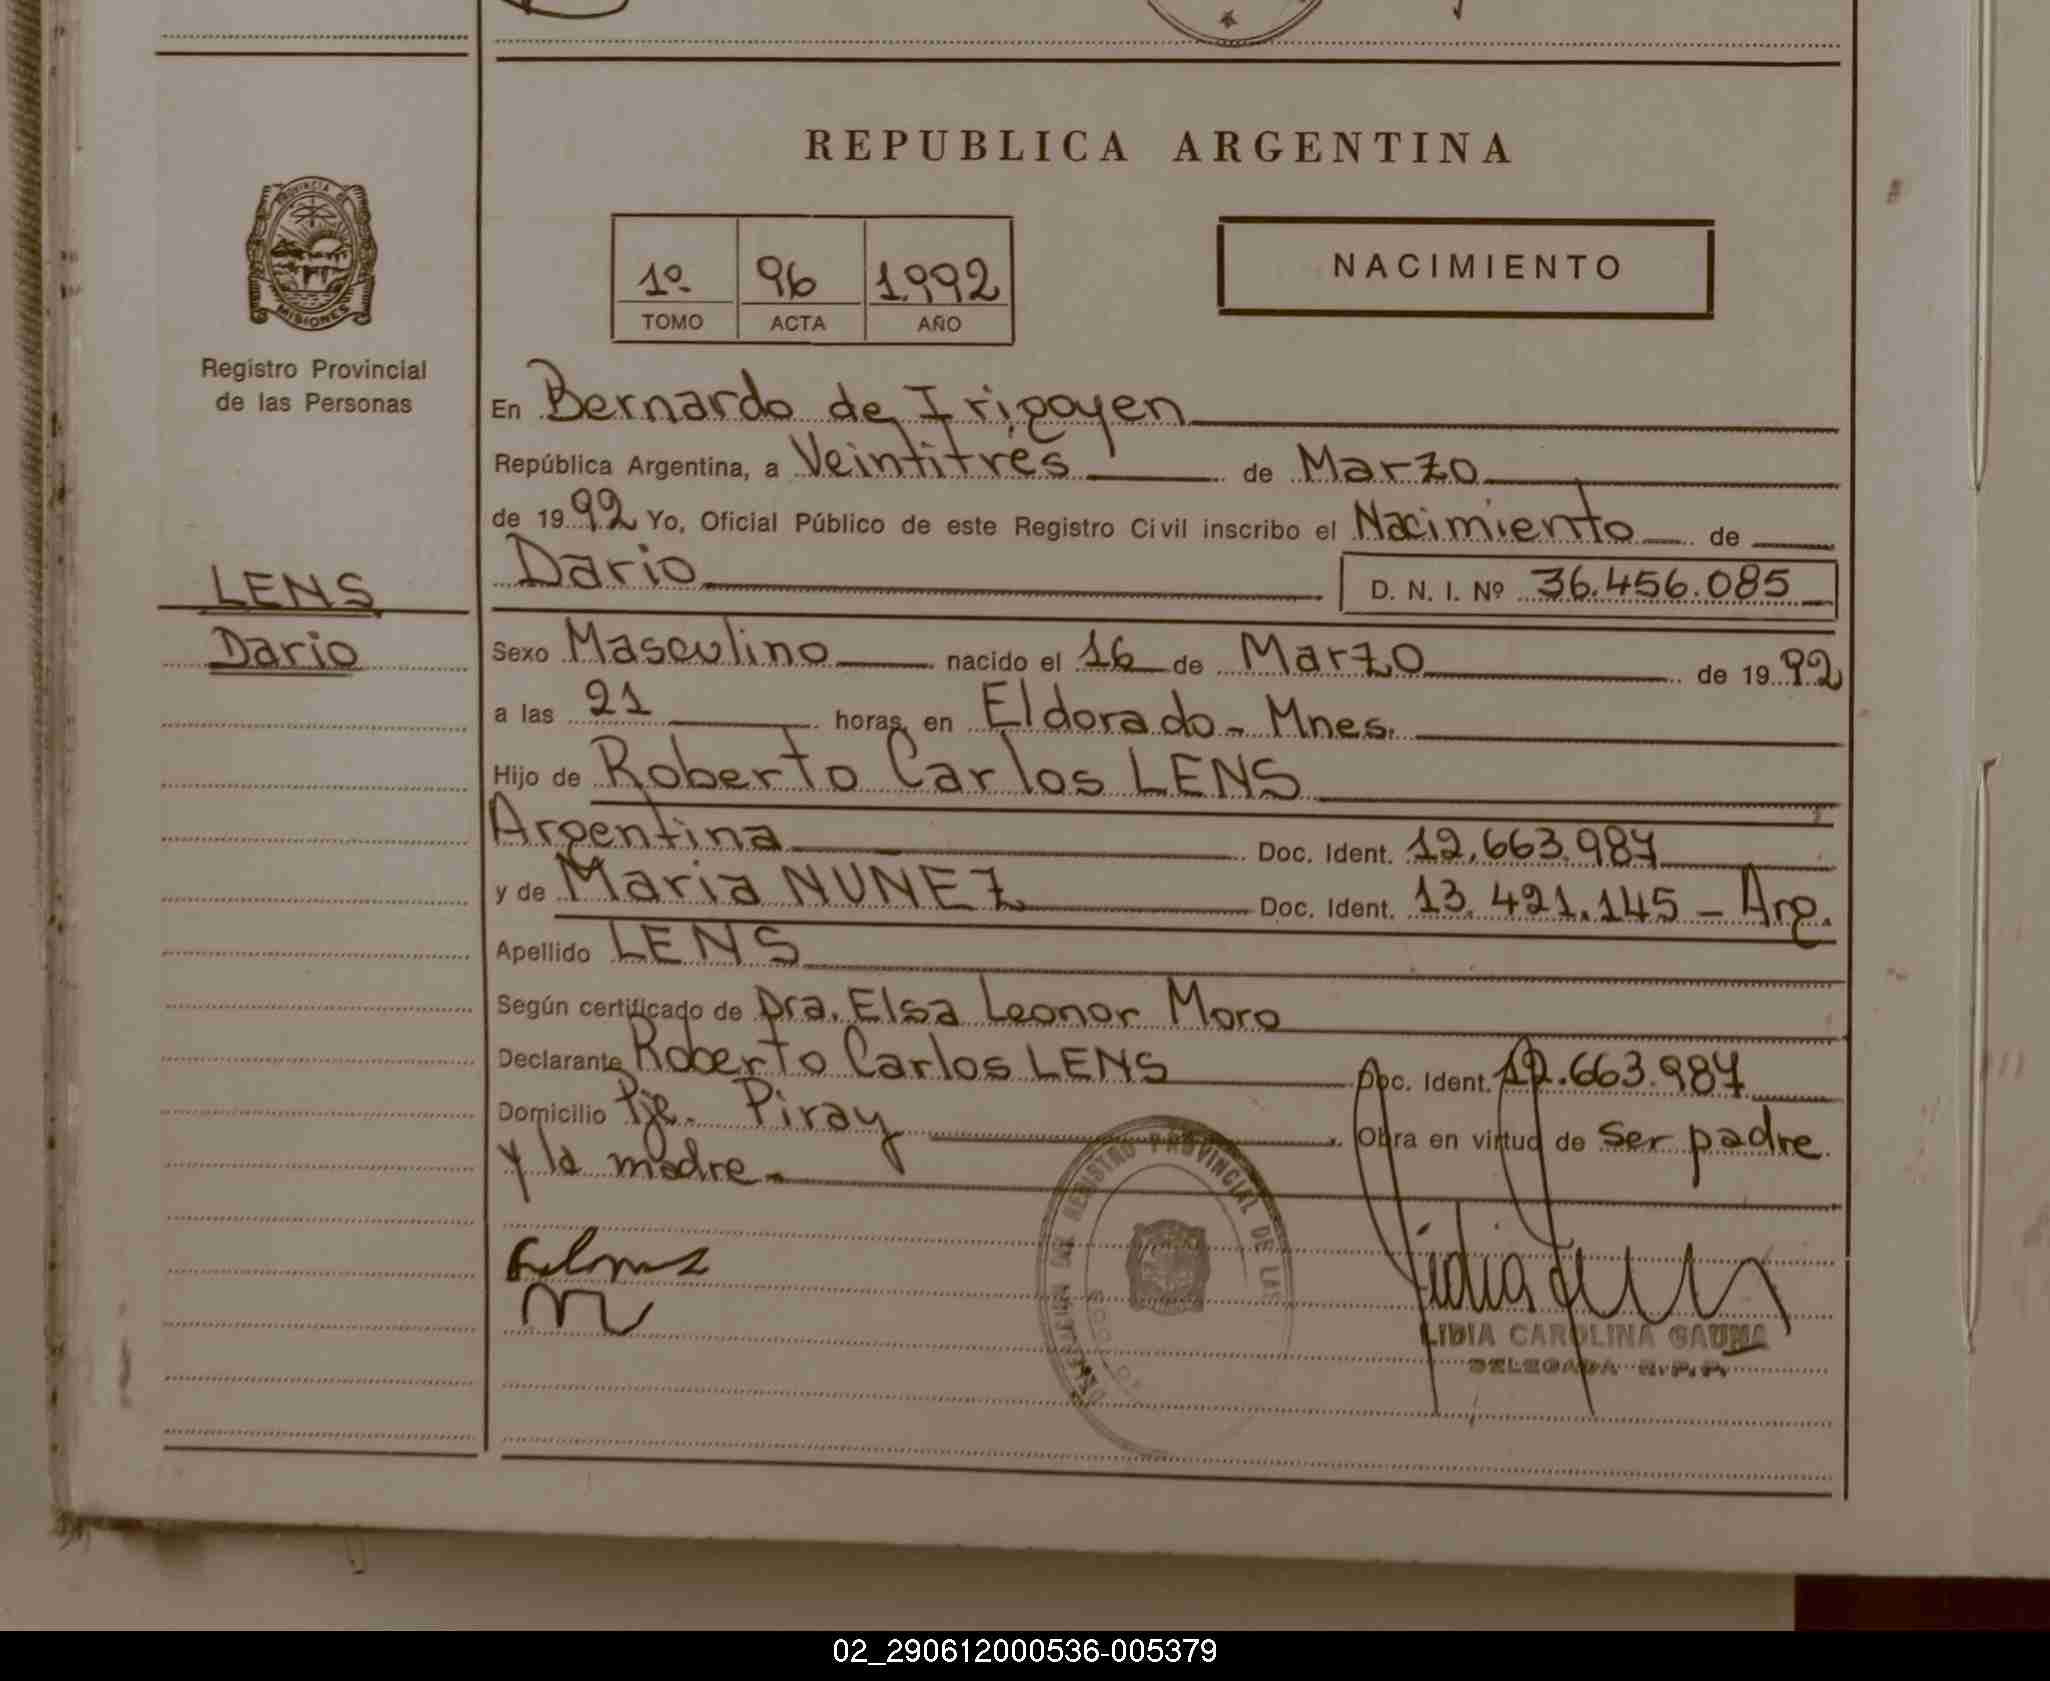 REPUBLICA ARGENTINA
PROVINCIA DE
MISIONES
Registro Provincial
de las Personas
1º 96 1.992
TOMO ACTA AÑO
NACIMIENTO
En Bernardo de Irigoyen
República Argentina, a Veintitrés de Marzo
de 1992 Yo, Oficial Público de este Registro Civil inscribo el Nacimiento de
Dario D. N. I. Nº 36.456.085
LENS
Dario
Sexo Masculino nacido el 16 de Marzo de 1992
a las 21 horas, en Eldorado - Mnes.
Hijo de Roberto Carlos LENS
Argentina Doc. Ident. 12.663.987
y de Maria NUNEZ Doc. Ident. 13.421.145 - Arg.
Apellido LENS
Según certificado de Dra. Elsa Leonor Moro
Declarante Roberto Carlos LENS Doc. Ident. 12.663.987
Domicilio Pje. Piray Obra en virtud de ser padre
y la madre -
REGISTRO PROVINCIAL DE LAS
LIDIA CAROLINA GAUNA
DELEGADA R.P.P.
02_290612000536-005379